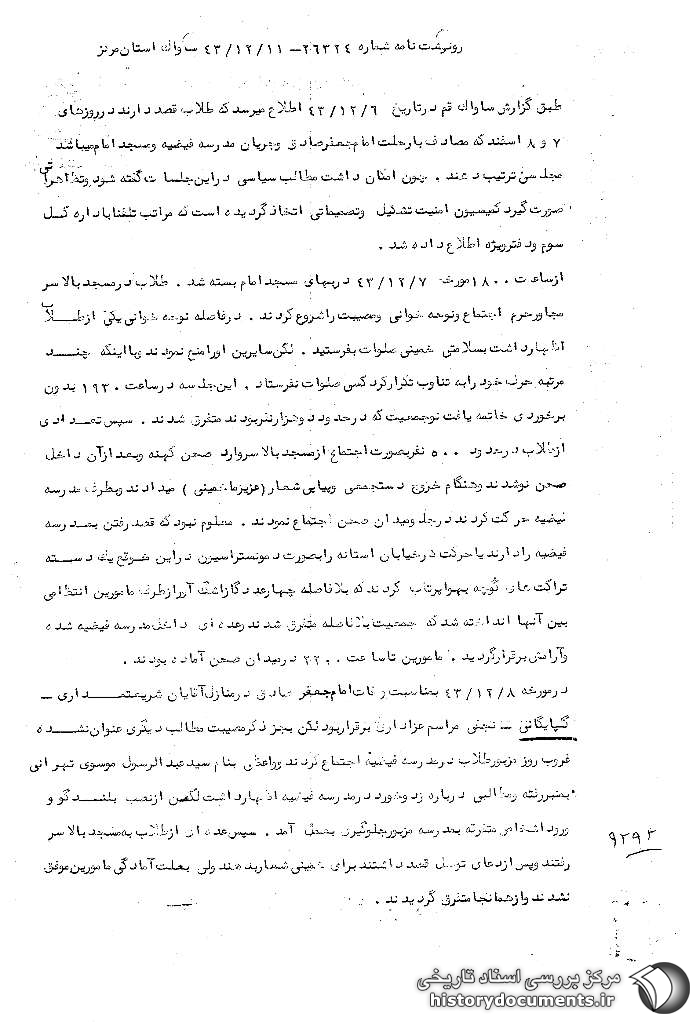 رونوشت نامه شماره ۲۶۳۲۴ – ۴۳/۱۲/۱۱ ساواك استان مركز
طبق گزارش ساواك قم در تاريخ ۴۳/۱۲/۶ اطلاع ميرسد كه طلاب قصد دارند در روزهاى
۷ و ۸ اسفند كه مصادف با رحلت امام جعفر صادق و جريان مدرسه فيضيه ومسجد امام ميباشد
مجلسى ترتيب دهند . چون امكان داشت مطالب سياسى در اين جلسات گفته شود و تظاهراتى
صورت گيرد كميسيون امنيت تشكيل وتصميماتى اتخاذ گرديده است كه مراتب تلفنا باداره كل
سوم ودفتر ويژه اطلاع داده شد .
از ساعت ۱۸۰۰ مورخه ۴۳/۱۲/۷ دربهاى مسجد امام بسته شد . طلاب در مسجد بالاسر
مجاور حرم اجتماع ونوحه خوانى ومصيبت را شروع كردند . در فاصله نوحه خوانى يكى از طلاب
اظهار داشت بسلامتى خمينى صلوات بفرستيد . لكن سايرين او را منع نمودند با اينكه چند
مرتبه حرف خود را به تناوب تكرار كرد كسى صلوات نفرستاد . اين جلسه در ساعت ۱۹۳۰ بدون
برخوردى خاتمه يافت وجمعيت كه در حدود دو هزار نفر بودند متفرق شدند . سپس تعدادى
از طلاب در حدود ۵۰۰ نفر بصورت اجتماع از مسجد بالاسر وارد صحن كهنه وبعد از آن داخل
صحن نو شدند وهنگام خروج دستجمعى وپياپى شعار (عزيز ما خمينى) ميدادند وبطرف مدرسه
فيضيه حركت كردند در جلو ميدان صحن اجتماع نمودند . معلوم نبود كه قصد رفتن بمدرسه
فيضيه را دارند يا حركت در خيابان استانه را بصورت دمونستراسيون در اين موقع يك دسته
تراكت هاى گوچه بهوا پرتاب كردند كه بلا فاصله چهار عدد گاز اشك آور از طرف مامورين انتظامى
بين آنها انداخته شد كه جمعيت بلا فاصله متفرق شدند وعده اى داخل مدرسه فيضيه شده
وآرامش برقرار گرديد . مامورين تا ساعت ۲۲۰۰ در ميدان صحن آماده بودند .
در مورخه ۴۳/۱۲/۸ بمناسبت وفات امام جعفر صادق در منازل آقايان شريعتمدارى –
گلپايگانى – نجفى مراسم عزادارى برقرار بود لكن بجز ذكر مصيبت مطالب ديگرى عنوان نشده
غروب روز مزبور طلاب در مدرسه فيضيه اجتماع كردند وواعظى بنام سيد عبد الرسول موسوى تهرانى
بمنبر رفته ومطالبى درباره زد وخورد در مدرسه فيضيه اظهار داشت لكن از نصب بلندگو و
ورود اشخاص متفرقه بمدرسه مزبور جلوگيرى بعمل آمد . سپس عده اى از طلاب به مسجد بالاسر
رفتند وپس از دعاى توسل قصد داشتند براى خمينى شعار بدهند ولى بعلت آمادگى مامورين موفق
نشدند واز همانجا متفرق گرديدند .
۹۲۹۳
مرکز بررسی اسناد تاریخی
historydocuments.ir